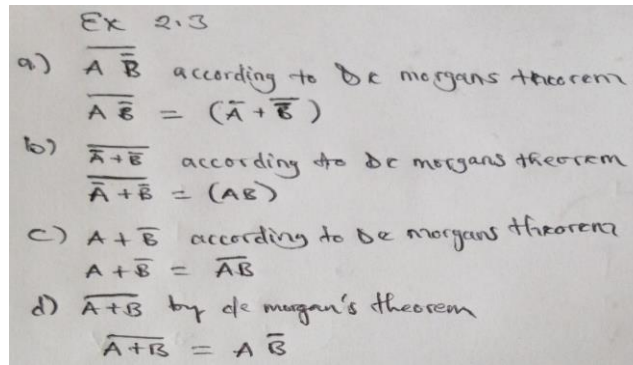 Ex 2.3
a.) \overline{A \bar{B}} according to De morgans theorem
\overline{A \bar{B}} = (\bar{A} + \overline{\bar{B}})
b) \overline{\bar{A} + \bar{B}} according to De morgans theorem
\overline{\bar{A} + \bar{B}} = (AB)
c) A + \bar{B} according to De morgans theorem
A + \bar{B} = \overline{AB}
d) \overline{A+B} by de morgan's theorem
\overline{A+B} = A \bar{B}